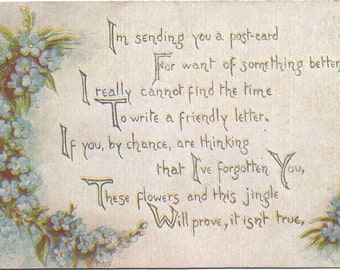 I'm sending you a post-card
For want of something better
I really cannot find the time
To write a friendly letter.
If you, by chance, are thinking
that I've forgotten You,
These flowers and this jingle
Will prove, it isn't true,